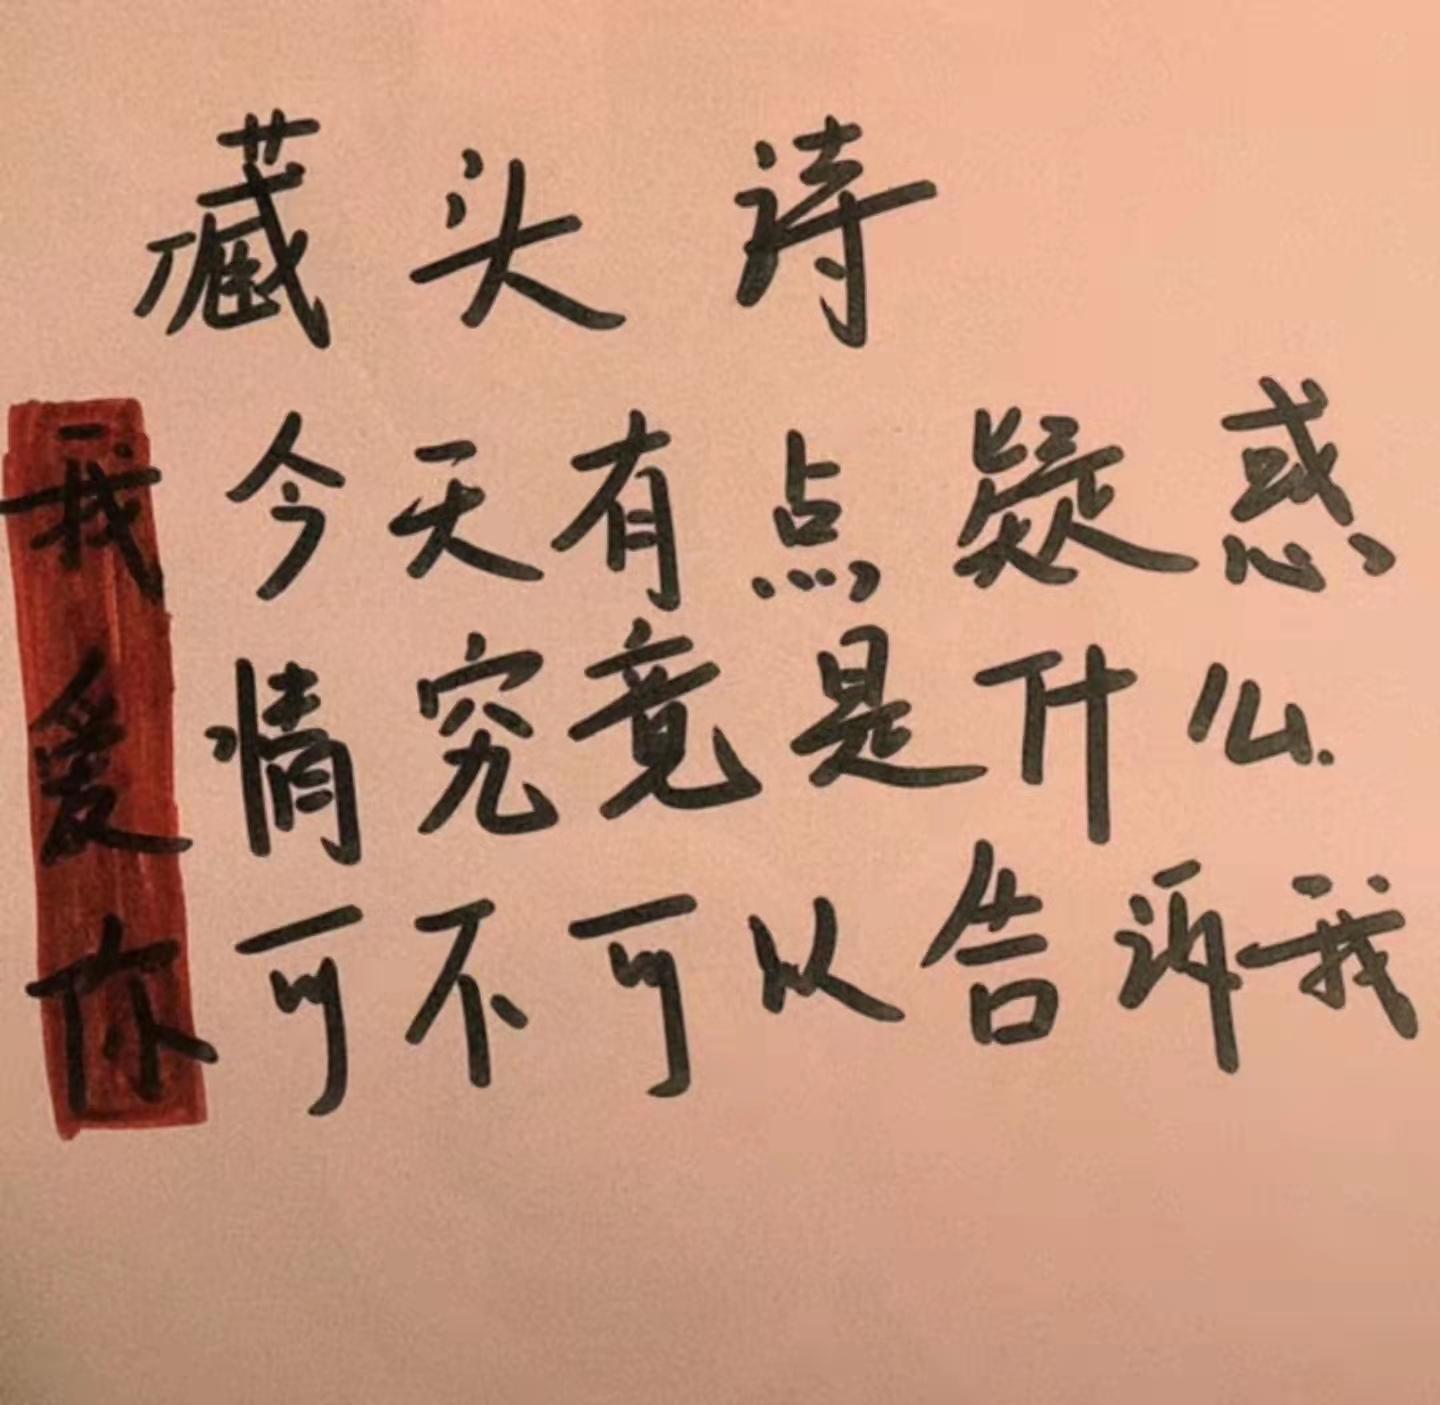 藏头诗
我今天有点疑惑
爱情究竟是什么.
你可不可以告诉我